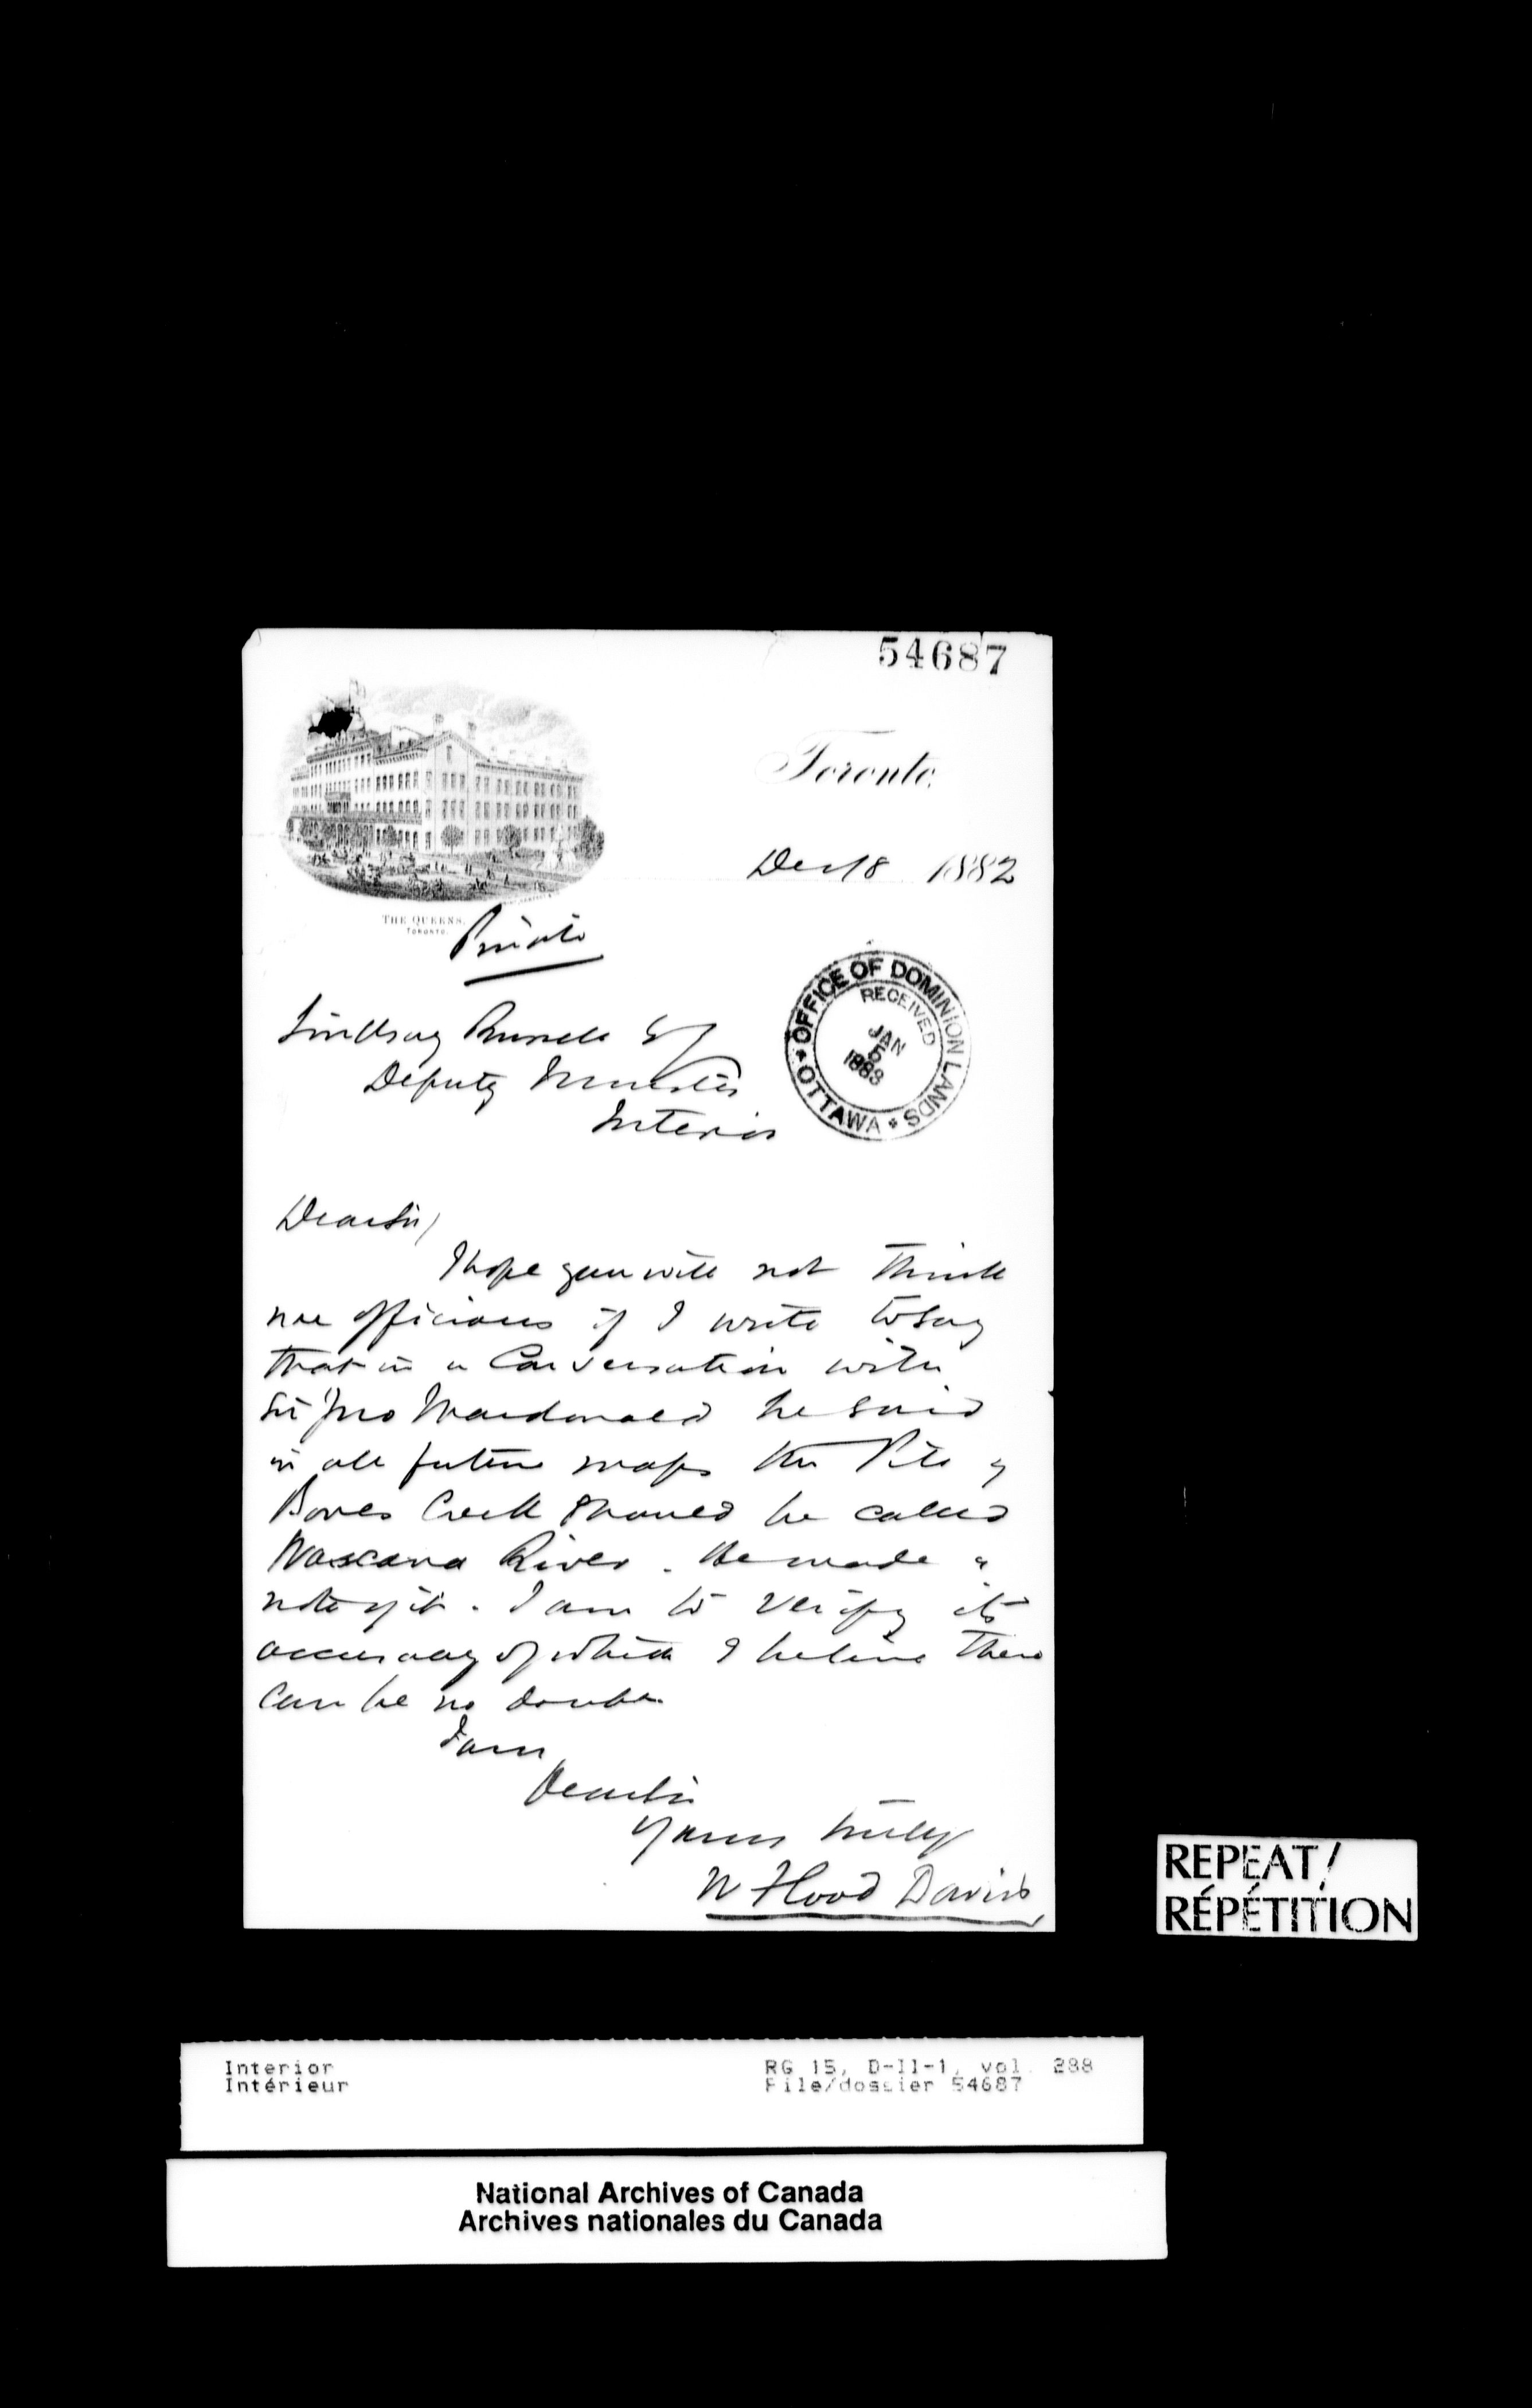 54687
Toronto,
Dec 18 1882
THE QUEENS,
TORONTO.
Private
OFFICE OF DOMINION LANDS
RECEIVED
JAN
5
1883
OTTAWA
Lindsay Russell Esq
Deputy Minister
Interior
Dear Sir,
I hope you will not think
me officious if I write to say
that in a Conversation with
Sir Jno Macdonald he said
in all future maps the Pile of
Bones Creek should be called
Wascana River. He made a
note of it. I am to verify its
accuracy of which I believe there
can be no doubt
I am
Dear Sir
Yours truly
N Flood Davin
REPEAT/
RÉPÉTITION
Interior RG 15, D-II-1, vol. 288
Intérieur File/dossier 54687
National Archives of Canada
Archives nationales du Canada